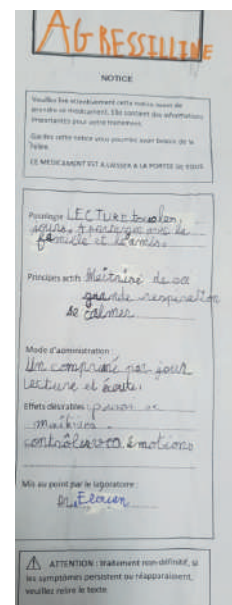 AGRESSILLINE
NOTICE
Veuillez lire attentivement cette notice avant de
prendre ce médicament. Elle contient des informations
importantes pour votre traitement.
Gardez cette notice vous pourriez avoir besoin de la
relire.
LE MEDICAMENT EST A LAISSER A LA PORTEE DE TOUS
Posologie LECTURE tous les
jours. A partager avec la
famille et les amis.
Principes actifs Maîtrise de sa
grande respiration
se calmer
Mode d'administration :
Un comprimé par jour
Lecture et écoute.
Effets désirables : pouvoir se
maîtriser
contrôler émotions
Mis au point par le laboratoire :
ATTENTION : traitement non-définitif, si
les symptômes persistent ou réapparaissent,
veuillez relire le texte